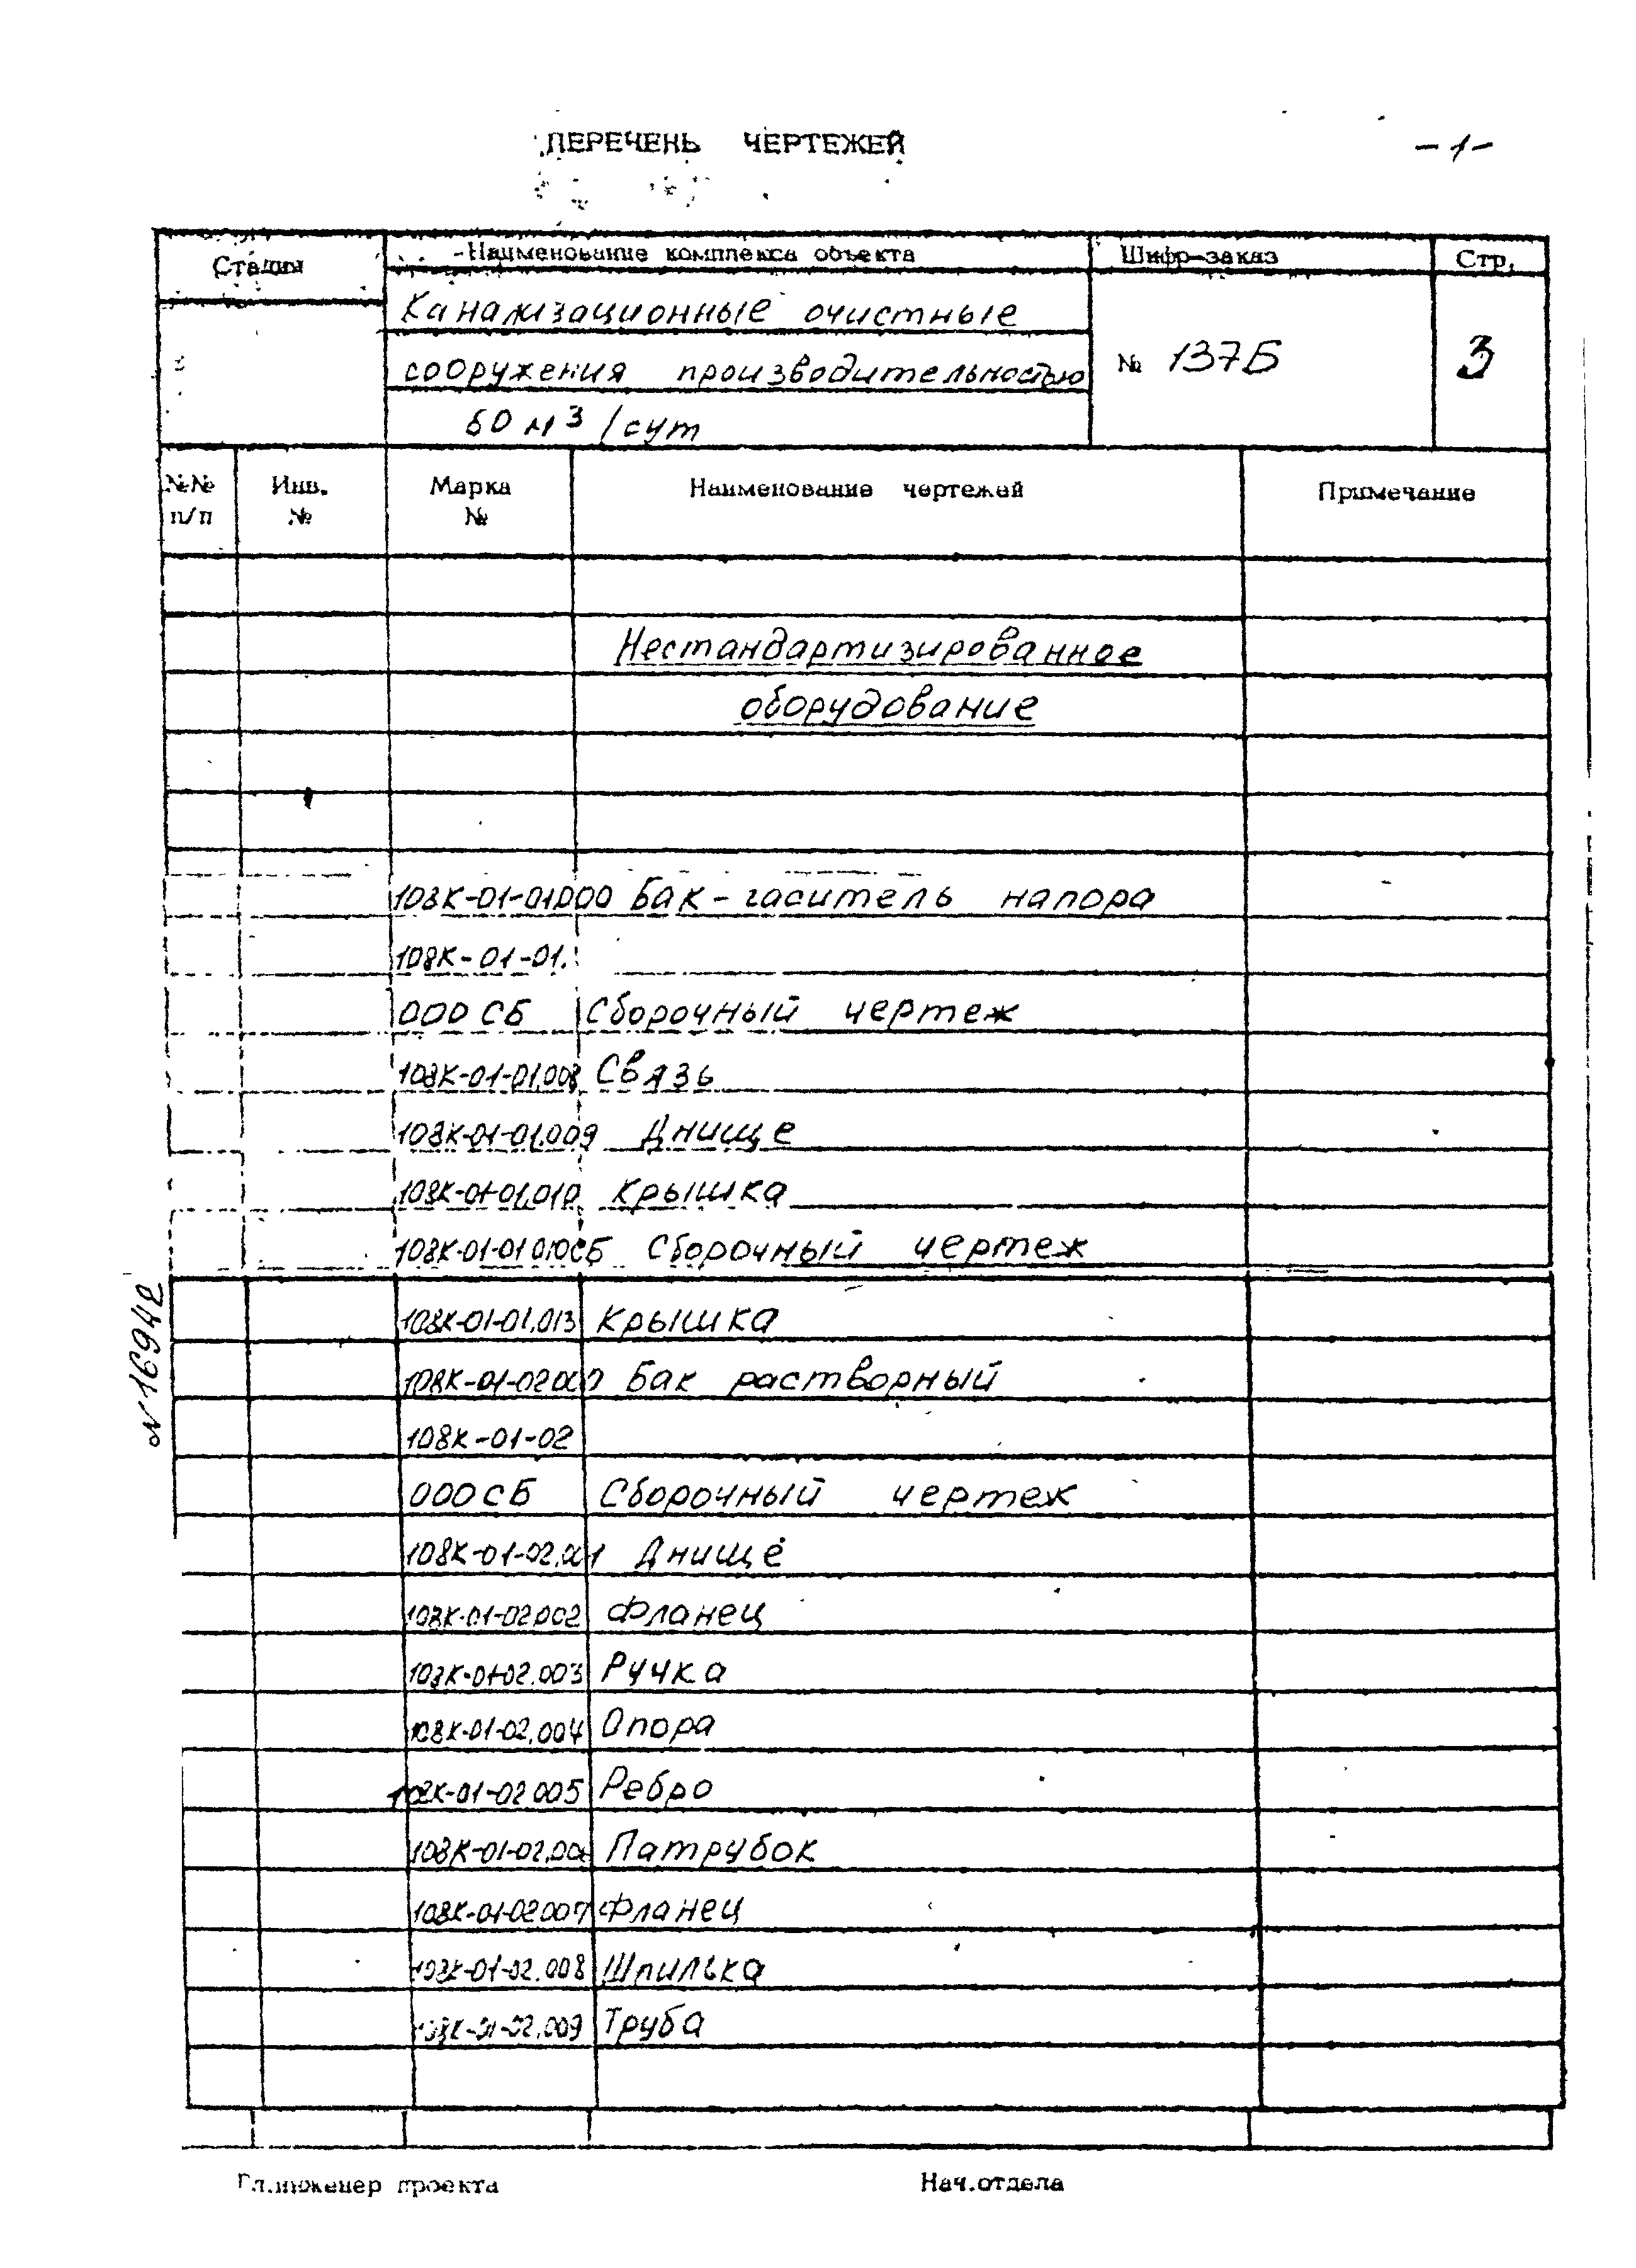 ПЕРЕЧЕНЬ ЧЕРТЕЖЕЙ
-1-
Стадии
Наименование комплекса объекта
Шифр-заказ
Стр.
Канализационные очистные
сооружения производительностью
50 м3/сут
№ 137Б
3
№№ п/п
Инв. №
Марка №
Наименование чертежей
Примечание
Нестандартизированное
оборудование
108К-01-01.000 Бак-гаситель напора
108К-01-01.
000 СБ Сборочный чертеж
108К-01-01.008 Связь
108К-01-01.009 Днище
108К-01-01.010 Крышка
108К-01-01 010СБ Сборочный чертеж
108К-01-01.013 Крышка
108К-01-02 000 Бак растворный
108К-01-02
000 СБ Сборочный чертеж
108К-01-02.001 Днище
108К-01-02.002 Фланец
108К-01-02.003 Ручка
108К-01-02.004 Опора
108К-01-02 005 Ребро
108К-01-02.006 Патрубок
108К-01-02 007 Фланец
108К-01-02.008 Шпилька
108К-01-02.009 Труба
N 16942
Гл.инженер проекта
Нач.отдела